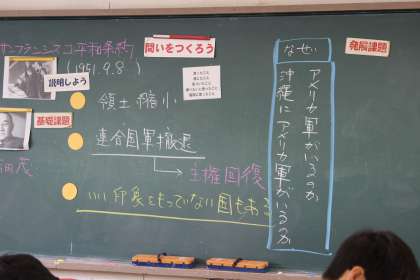 サンフランシスコ平和条約
(1951.9.8)
問いをつくろう
説明しよう
基礎課題
領土縮小
連合国軍撤退
→主権回復
いい印象をもっていない国もある
田茂
発展課題
なぜ
アメリカ軍がいるのか
沖縄にアメリカ軍がいるのか